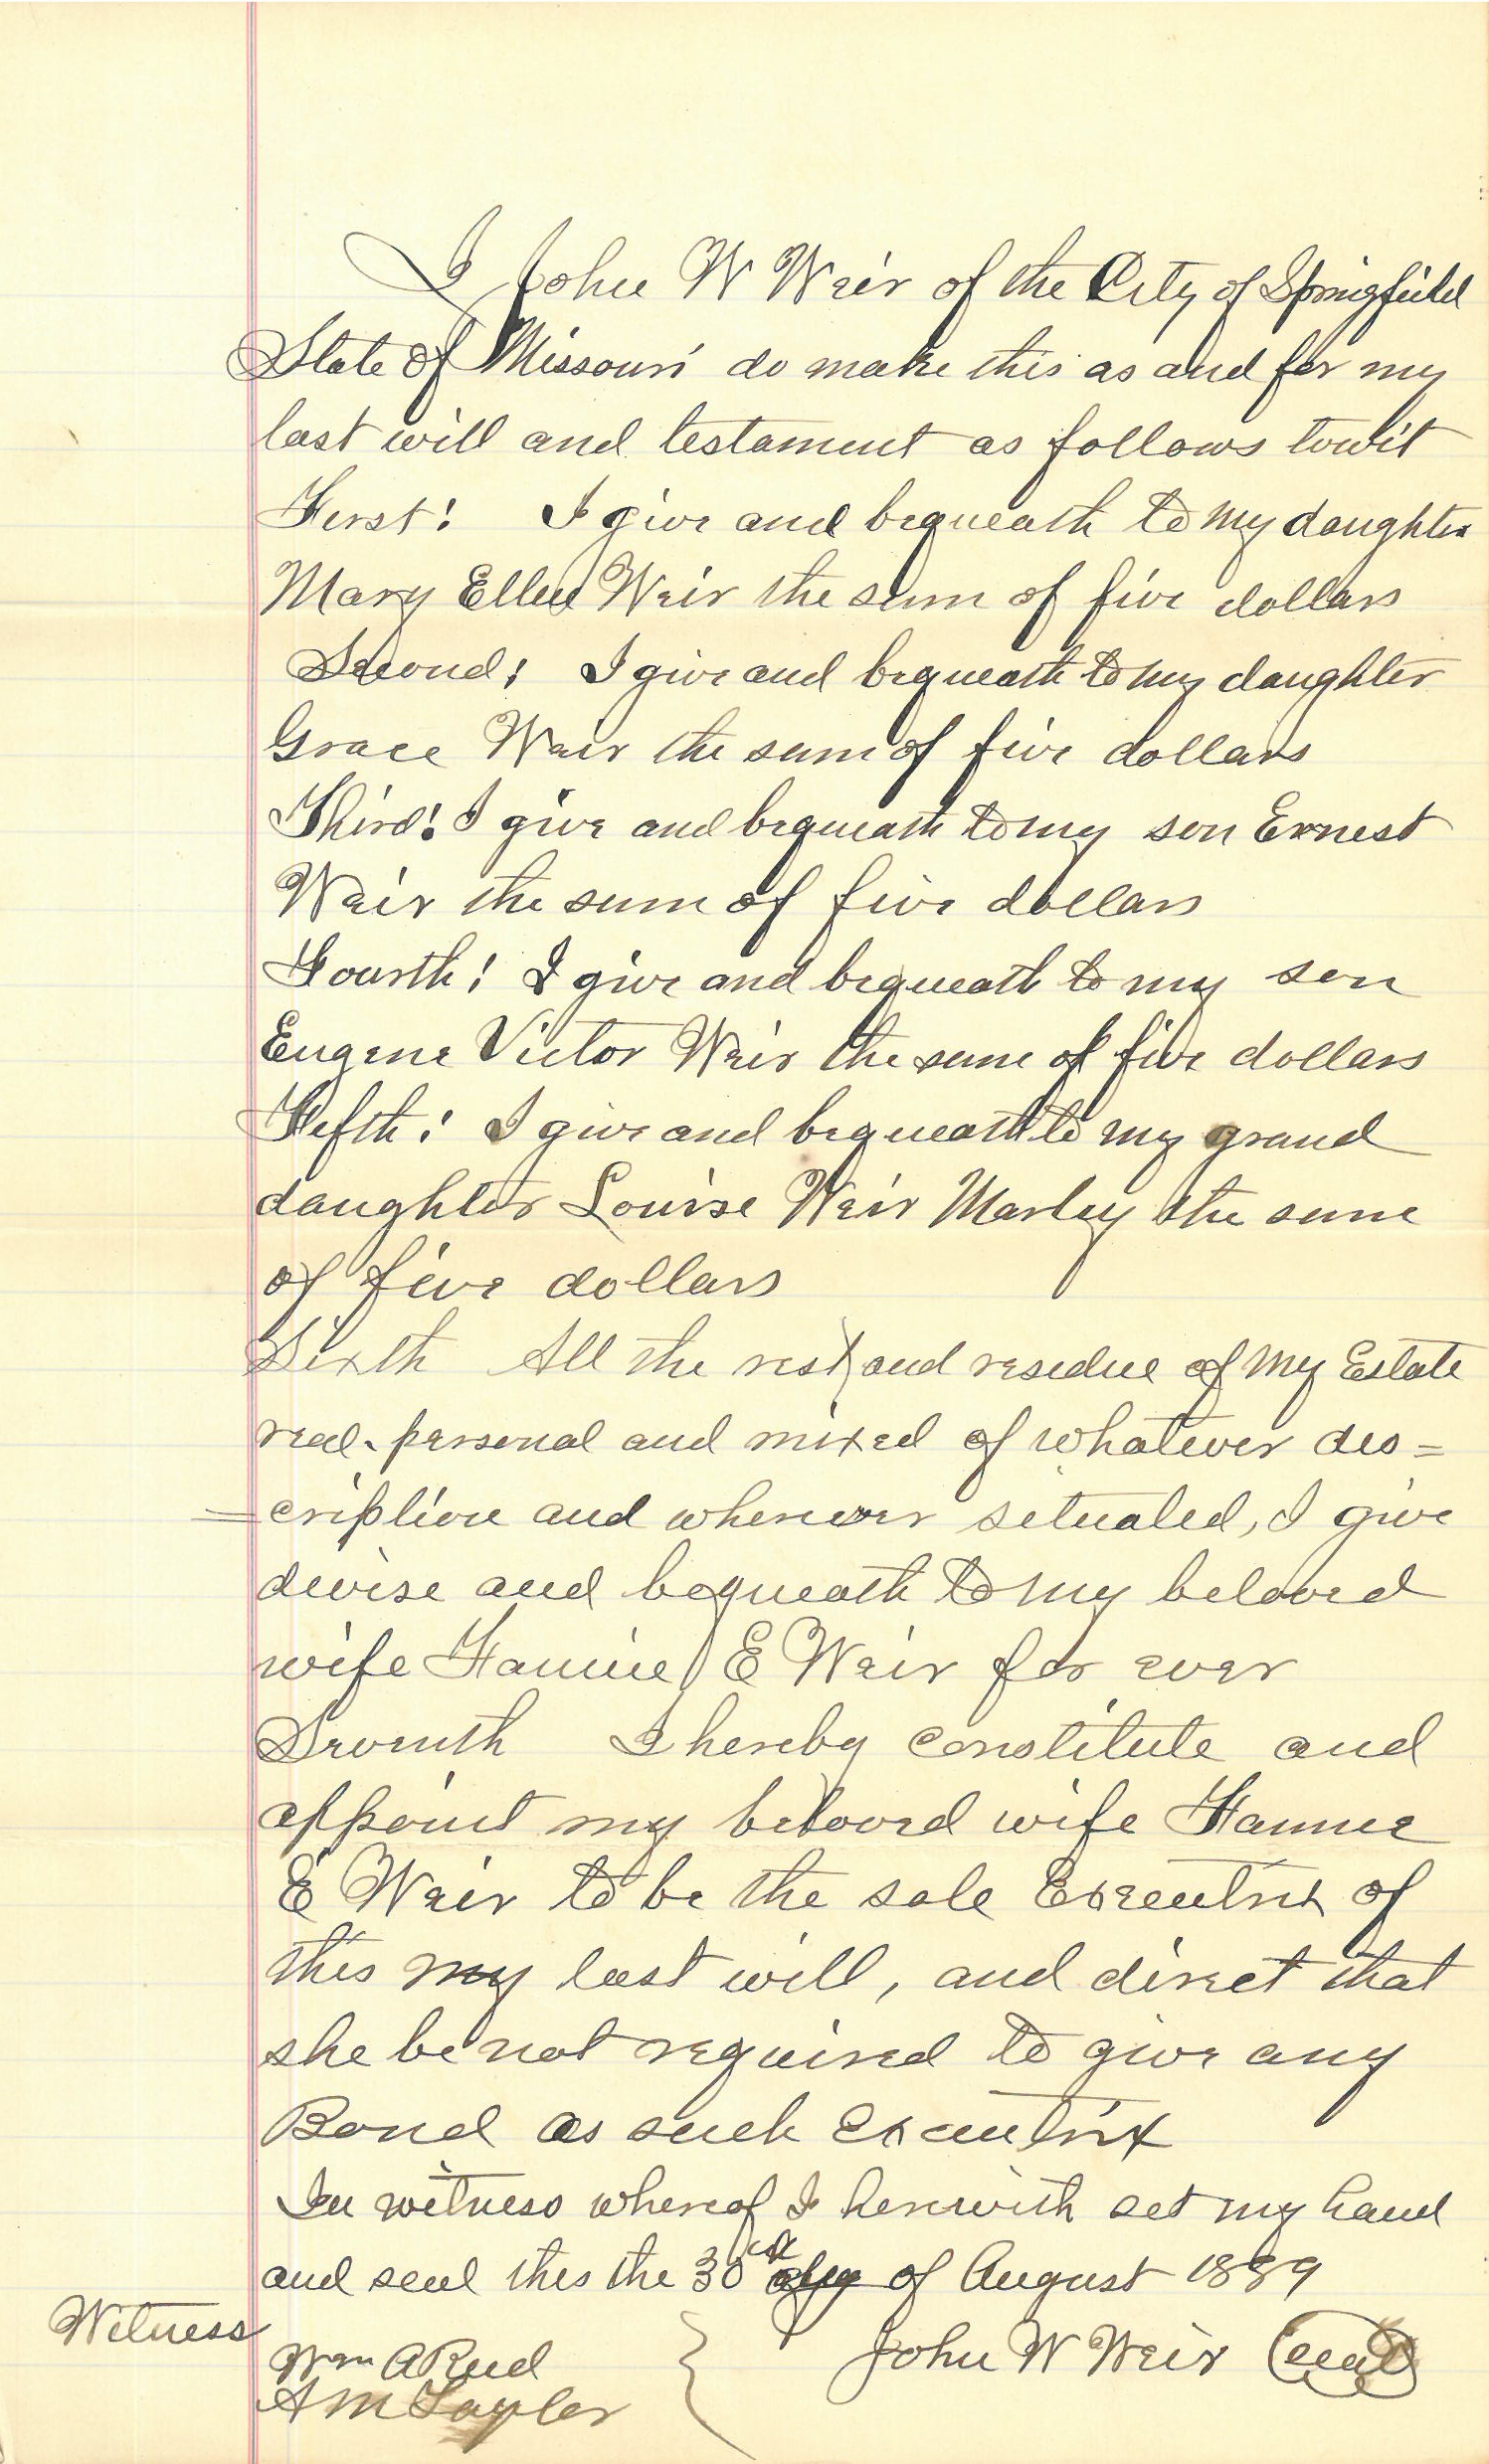 I John W Weir of the City of Springfield
State of Missouri do make this as and for my
last will and testament as follows towit
First: I give and bequeath to my daughter
Mary Ellen Weir the sum of five dollars
Second: I give and bequeath to my daughter
Grace Weir the sum of five dollars
Third: I give and bequeath to my son Ernest
Weir the sum of five dollars
Fourth: I give and bequeath to my son
Eugene Victor Weir the sum of five dollars
Fifth: I give and bequeath to my grand
daughter Louise Weir Marley the sum
of five dollars
Sixth All the rest and residue of my Estate
real, personal and mixed of whatever des=
=cription and wherever situated, I give
devise and bequeath to my beloved
wife Fannie E Weir for ever
Seventh I hereby constitute and
appoint my beloved wife Fannie
E Weir to be the sole Executrix of
this my last will, and direct that
she be not required to give any
Bond as such Executrix
In witness whereof I herewith set my hand
and seal this the 30 day of August 1889
Witness
Wm A Reed
John W Weir (seal)
A M Taylor